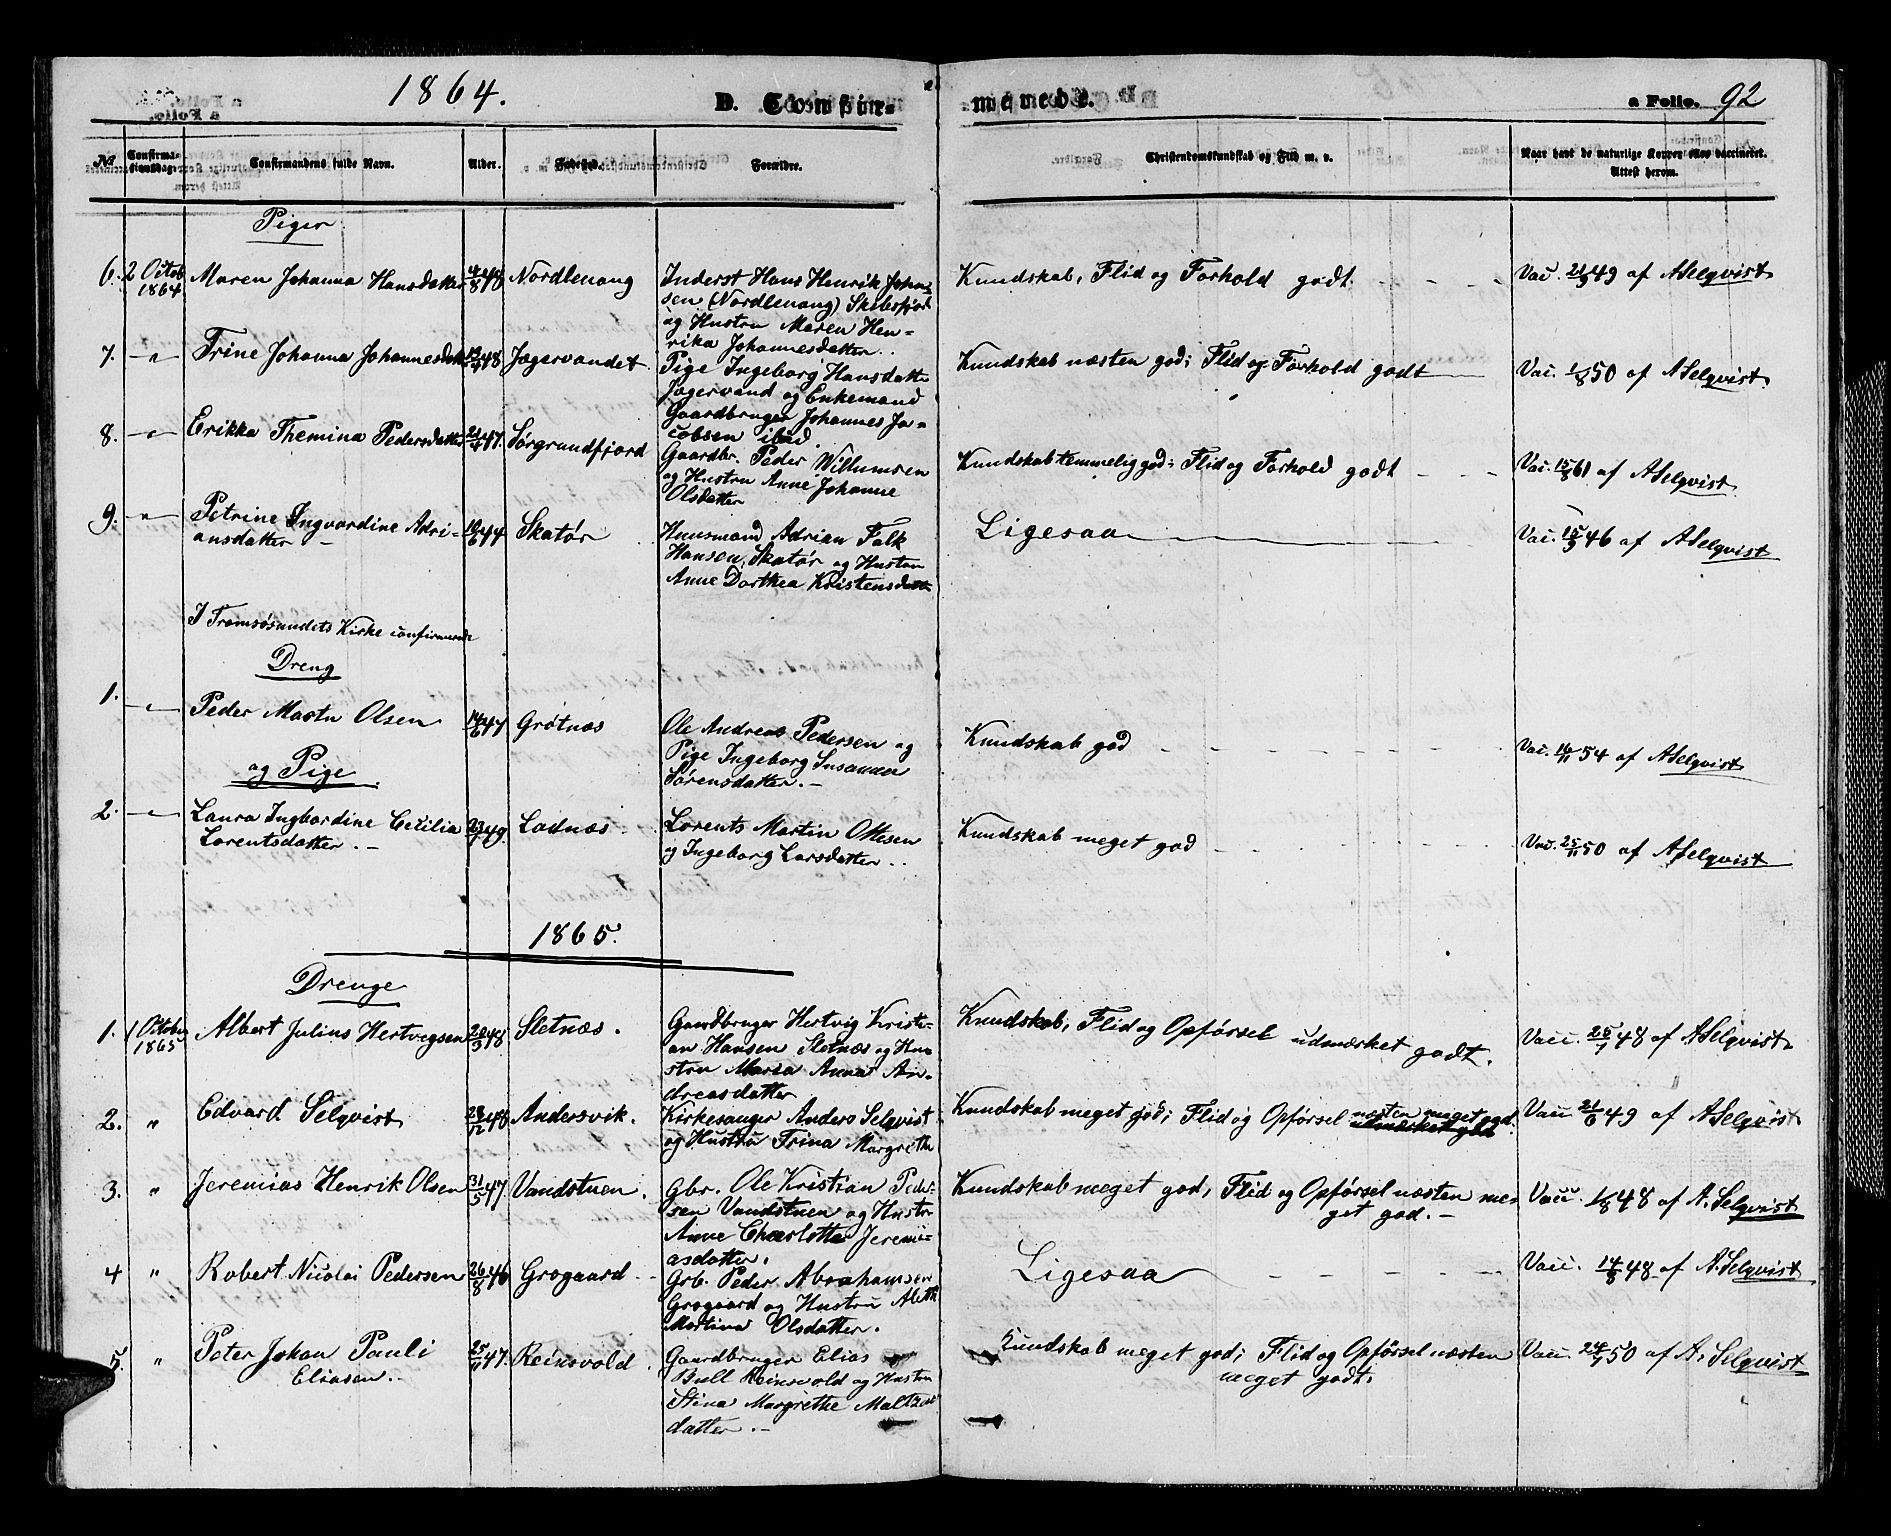 1864.
D. Confir-
merede.
a Folio. 92
No.
Confirma-
tionsdag.
Confirmandens fulde Navn.
Alder.
Fødested.
Forældre.
Christendomskundskab og Flid m. v.
Naar havt de naturlige Kopper eller vaccineret.
Attest herom.
Piger
6. 2 Octob 1864 Maren Johanna Hansdatter 4/8 48 Nordlenang
Inderst Hans Henrik Johan-
sen (Nordlenang) Skibsfjord
og Hustru Maren Hen-
rika Johannesdatter.
Kundskab, Flid og Forhold godt
Vac. 21/9 49 af ASelqvist
7. -"- Trine Johanna Johannesdatter 48 Jægervandet
Pige Ingeborg Hansdatter
Jægervand og Enkemand
Gaardbruger Johannes Ja-
cobsen ibid.
Kundskab næsten god; Flid og Forhold godt
Vac. 1/8 50 af ASelqvist
8. -"- Erikka Themina Pedersdatter 47. Sørgrundfjord
Gaardbr. Peder Willumsen
og Hustru Anne Johanne
Olsdatter
Kundskab temmelig god; Flid og Forhold godt
Vac. 15/8 61 af ASelqvist
9. -"- Petrine Ingvardine Adri-
ansdatter 10/6 44 Skatør
Huusmand Adrian Falk
Hansen, Skatør og Hustru
Anne Dorthea Kristensdatt
Ligesaa
Vac. 15/9 46 af ASelqvist
I Tromsøsundets Kirke confirmerede
Dreng
1. -"- Peder Martn Olsen 14/6 47 Grøtnæs
Ole Andreas Pedersen og
Pige Ingeborg Susanna
Sørensdatter.
Kundskab god
Vac. 16/11 54 af ASelqvist
og Pige
2. -"- Laura Ingbardine Cecilia
Lorentsdatter. 49. Ladnæs
Lorents Martin Ottesen
og Ingeborg Larsdatter
Kundskab meget god
Vac. 25/11 50 af ASelqvist
1865.
Drenge
1. 1 October 1865 Albert Julius Hertvigsen 20/3 48 Sletnæs.
Gaardbruger Hertvig Kristi-
an Hansen Sletnæs og Hu-
stru Maria Anna An-
dreasdatter
Kundskab, Flid og Opførsel udmærket godt.
Vacc. 25/7 48 af ASelqvist
2. " Edvard Selqvist 28/12 48 Andersvik.
Kirkesanger Anders Selqvist
og Hustru Trina Margrethe
Kundskab meget god; Flid og Opførsel næsten meget god.
udmærket godt
Vacc 21/6 49 af ASelqvist
3. " Jeremias Henrik Olsen 31/5 47. Vandstuen.
Gbr. Ole Kristian Peder-
sen Vandstuen og Hustru
Anne Charlotta Jeremi-
asdatter.
Kundskab meget god, Flid og Opførsel næsten me-
get god.
Vacc. 1/8 48 af A. Selqvist
4 " Robert Nicolai Pedersen 26/8 46 Grøgaard
Grb. Peder Abrahamsen
Grøgaard og Hustru Aleth
Martina Olsdatter.
Ligesaa
Vacc. 14/8 48 af A. Selqvist
5. " Peter Johan Pauli
Eliasen. 47. Reinsvold
Gaardbruger Elias
Bull Reinsvold og Hustru
Stina Margrethe Maltzens
datter.
Kundskab meget god; Flid og Opførsel næsten
meget godt.
Vacc. 24/7 50 af A. Selqvist